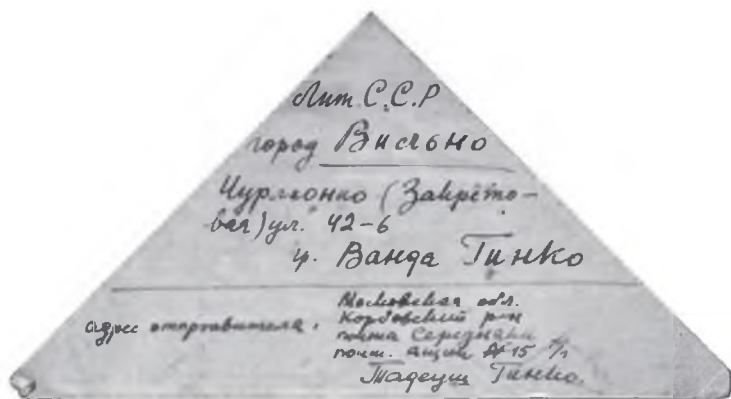 Лит С.С.Р
город Вильно
Чурлионко (Закрето-
вая) ул. 42-6
гр. Ванда Гинко
адрес отправителя.
Московская обл.
район
почта Середники
почт. ящик №15
Тадеуш Гинко.